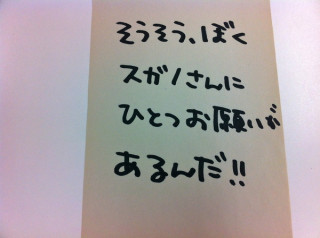 そうそう、ぼく
スガノさんに
ひとつお願いが
あるんだ!!